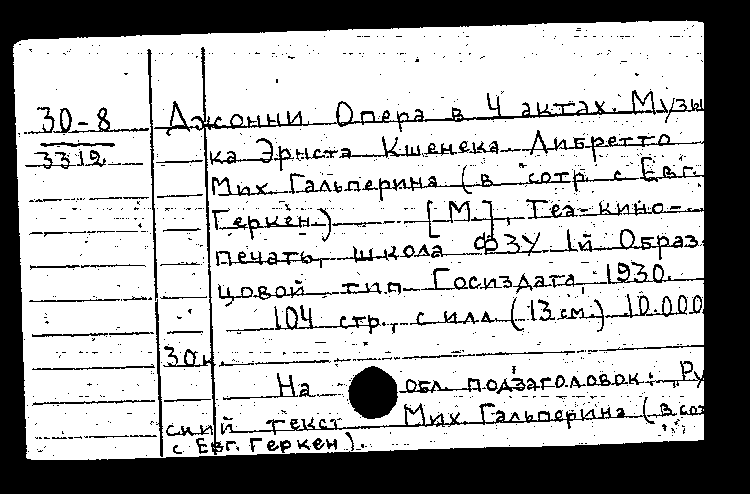 30-8
3312
Джонни Опера в 4 актах. Музы
ка Эрнста Кшенека Либретто
Мих. Гальперина (в сотр с Евг.
Геркен.) [М.], Теа-кино-
печать, школа ФЗУ 1й Образ
цовой тип Госиздата, 1930.
104 стр., с илл. (13 см.) 10.000
30к.
На обл. подзаголовок: „Ру
ский текст Мих. Гальперина (в сот
с Евг. Геркен).